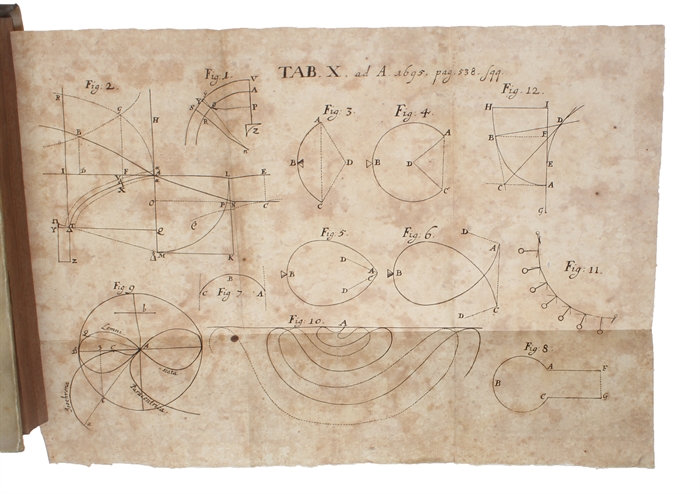 TAB. X. ad A. 1695. pag. 538. sqq.
Fig. 2
Fig. 1.
Fig. 3
Fig. 4.
Fig. 12.
V
A
P
Z
H
G
B
I
D
F
H
L
E
O
C
Q
M
K
Y
Z
X
A
B
D
C
A
B
D
C
H
I
B
F
D
E
C
A
G
Fig. 5
Fig. 6
Fig. 7
Fig. 11.
D
B
A
C
D
A
B
C
D
B
C
A
Fig. 9
Fig. 10.
A
Fig. 8
b
Lemni
scata
Paracentrica
Isochrona
A
F
B
C
G